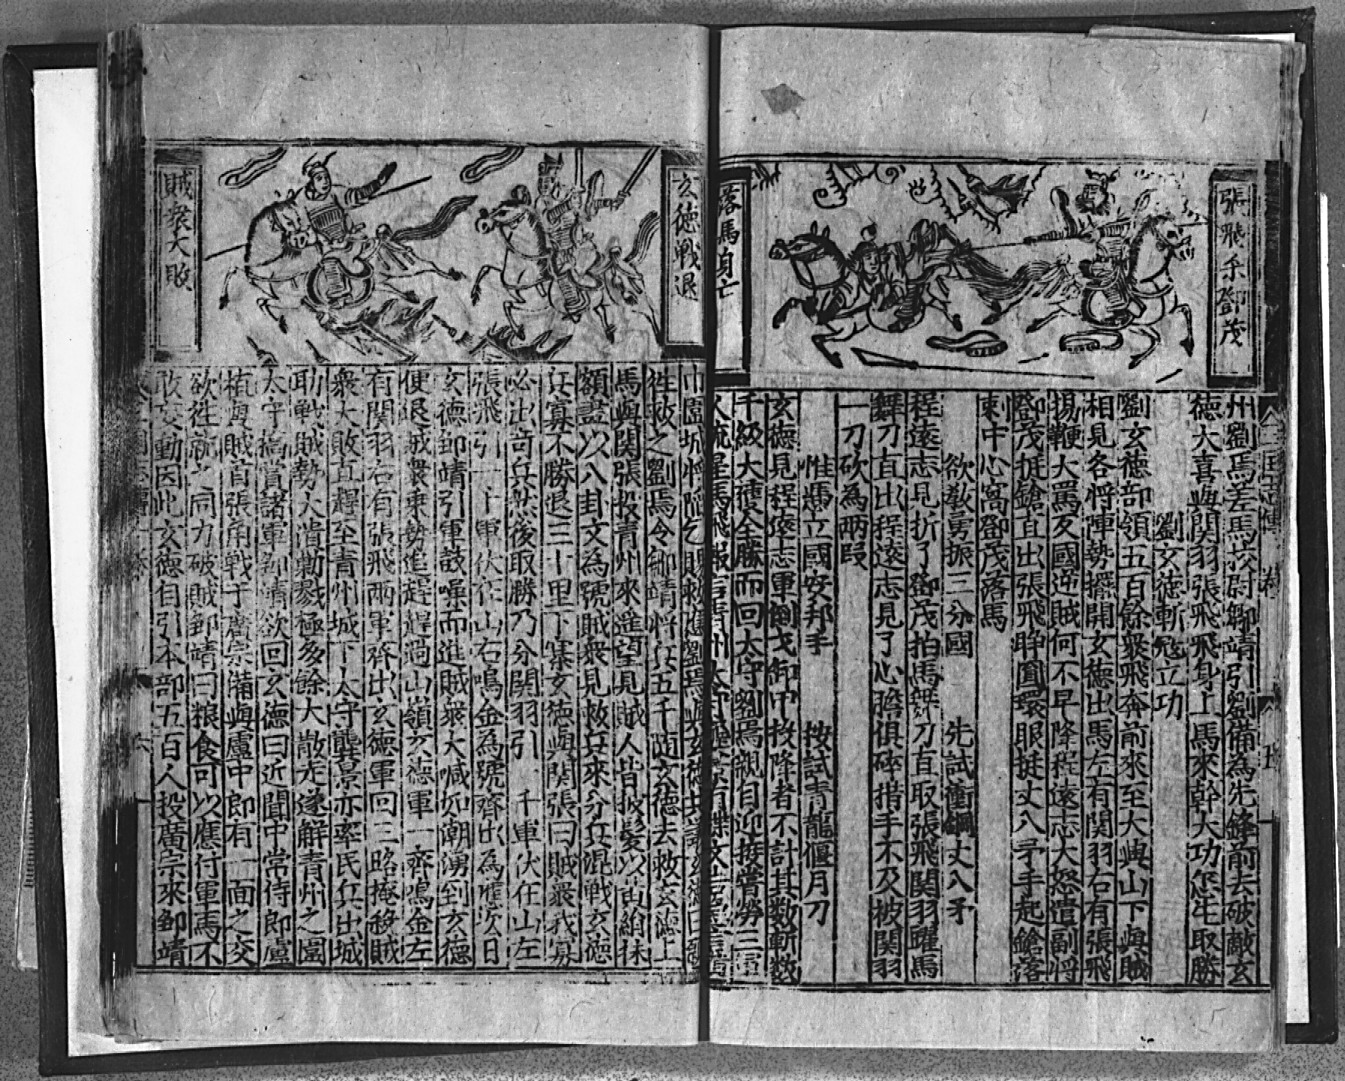 張飛手殺鄧茂
落馬身亡
州劉焉差馬校尉鄒靖引劉備為先鋒前去破敵玄
德大喜與関羽張飛飛身上馬來幹大功怎生取勝
劉玄德斬寇立功
劉玄德部領五百餘衆飛奔前來至大興山下與賊
相見各將陣勢擺開玄德出馬左有関羽右有張飛
揚鞭大罵反國逆賊何不早降程遠志大怒遣副將
鄧茂挺鎗直出張飛睜圓環眼挺丈八矛手起鎗落
刺中心窩鄧茂落馬
欲教勇振三分國　先試衝鋼丈八矛
程遠志見折了鄧茂拍馬舞刀直取張飛関羽躍馬
舞刀直出程遠志見了心膽俱碎措手不及被関羽
一刀砍為兩叚
惟慿立國安邦手　按試青龍偃月刀
玄德見程遠志軍倒戈卸甲投降者不計其数斬数
千級大獲全勝而回太守劉焉親自迎接賞勞三軍
玄德戦退
賊衆大敗
巾圍城將陷乞賜救應劉焉與玄德
徃救之劉焉令鄒靖將兵五千随玄德去救玄德上
馬與関張投青州來遥望見賊人皆披髮以黄絹抹
額盡以八卦文為號賊衆見救兵來分兵混戦玄德
兵寡不勝退三十里下寨玄德與関張曰賊衆我寡
必出竒兵然後取勝乃分関羽引一千軍伏在山左
張飛引一千軍伏在山右鳴金為號齊出為應次日
玄德鄒靖引軍鼓噪而進賊衆大喊如潮湧到玄德
便退賊衆乗勢追趕趕過山嶺玄德軍一齊鳴金左
有関羽右有張飛兩軍齊出玄德軍回三路掩殺賊
衆大敗直趕至青州城下太守龔景亦率民兵出城
助戦賊勢大潰勦戮極多餘大散走遂解青州之圍
太守犒賞諸軍鄒靖欲回玄德曰近聞中常侍郎盧
植與賊首張角戦于廣宗備與盧中郎有一面之交
欲徃就之同力破賊鄒靖曰粮食可以應付軍馬不
敢妄動因此玄德自引本部五百人投廣宗來鄒靖